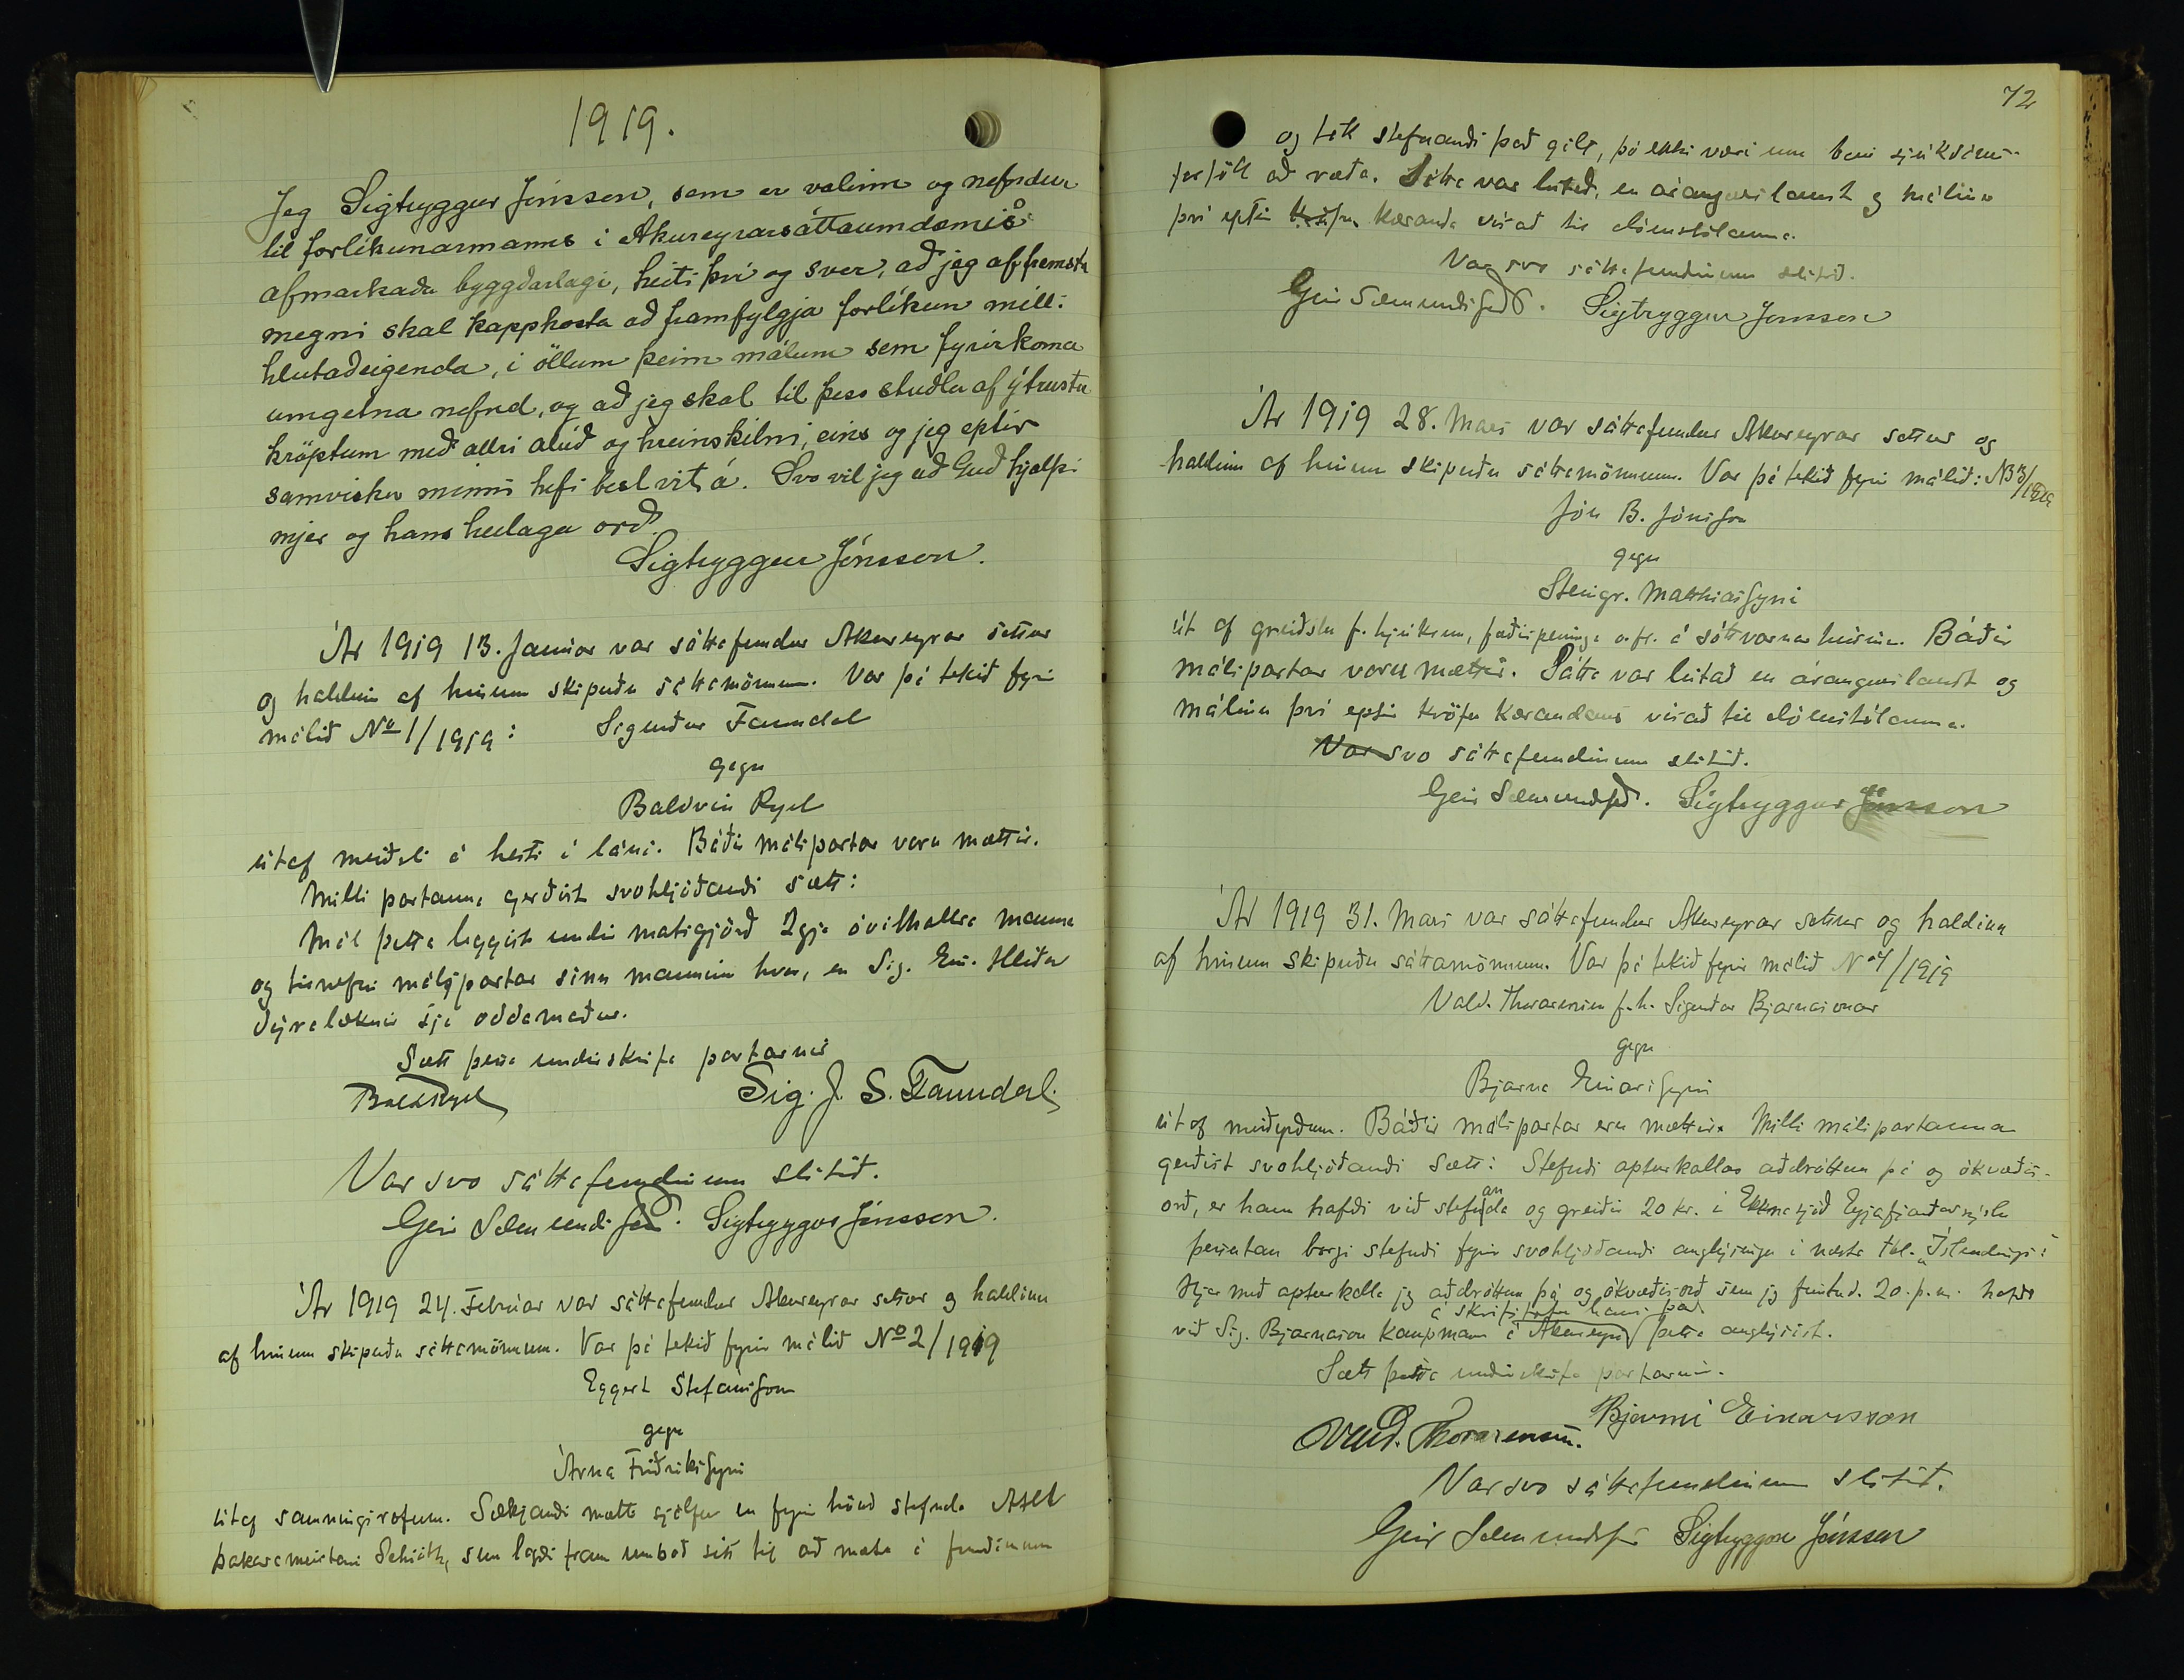 1919.
Jeg Sigtryggur Jónsson, sem er valinn og nefndur
til forlíkunarmanns í Akureyrarsáttaumdæmis
afmarkaða byggðarlagi, heiti því og sver, að jeg af fremsta
megni skal kappkosta að framfylgja forlíkun milli
hlutaðeigenda, í öllum þeim málum sem fyrir koma
umgetna nefnd, og að jeg skal til þess stuðla af ýtrustu
kröptum með allri alúð og hreinskilni, eins og jeg eptir
samvisku minni hefi best vit á. Svo vil jeg að Guð hjálpi
mjer og hans heilaga orð.
Sigtryggur Jónsson.
Ár 1919 13. Janúar var sáttafundur Akureyrar settur
og haldinn af hinum skipuðu sáttamönnum. Var þá tekið fyrir
málið No 1/1919: Sigurður Fanndal
gegn
Baldvin Ryel
út af meiðsli á hesti í láni. Báðir málspartar voru mættir.
Milli partanna gerðist svohljóðandi sætt:
Mál þetta leggist undir matsgjörð 2gja óvilhallra manna
og tilnefni málspartar sinn manninn hver, en Sig. Ein. Hlíðar
dýralæknir sje oddamaður.
Sætt þessa undirskrifa partarnir
Bald Ryel Sig. J. S. Fanndal.
Var svo sáttafundinum slitið.
Geir Sæmundsson. Sigtryggur Jónsson.
Ár 1919 24. Febrúar var sáttafundur Akureyrar settur og haldinn
af hinum skipuðu sáttamönnum. Var þá tekið fyrir málið No 2/1919
Eggert Stefánsson
gegn
Árna Friðrikssyni
út af samningsrofum. Sækjandi mætti sjálfur en fyrir hönd stefnda Axel
bakarameistari Schiöth, sem lagði fram umboð sitt til að mæta á fundinum
72
og tók stefnandi það gilt, þó ekki væri um
forföll að ræða. Sátta var leitað, en árangurslaust og málinu
því eptir kröfu kæranda vísað til dómstólanna.
Var svo sáttafundinum slitið.
Geir Sæmundsson. Sigtryggur Jónsson
Ár 1919 28. Mars var sáttafundur Akureyrar settur og
haldinn af hinum skipuðu sáttamönnum. Var þá tekið fyrir málið: No 3/1919
Jón B. Jónsson
gegn
Steingr. Matthíassyni
út af greiðslu f. hjúkrun, fæðispeninga o.fl. á sóttvarnarhúsinu. Báðir
málspartar voru mættir. Sátta var leitað en árangurslaust og
málinu því eptir kröfu kærandans vísað til dómstólanna.
Var svo sáttafundinum slitið.
Geir Sæmundsson. Sigtryggur Jónsson
Ár 1919 31. Mars var sáttafundur Akureyrar settur og haldinn
af hinum skipuðu sáttamönnum. Var þá tekið fyrir málið No 4/1919
Vald. Thorarensen f.h. Sigurðar Bjarnasonar
gegn
Bjarna Einarssyni
út af meiðyrðum. Báðir málspartar eru mættir. Milli málspartanna
gerðist svohljóðandi sætt: Stefndi apturkallar aðdróttun þá og ókvæðis-
orð, er hann hafði við stefnanda og greiðir 20 kr. í Ekknasjóð Eyjafjarðarsýslu
þessutan borgi stefndi fyrir svohljóðandi auglýsingu í næsta tbl. „Íslendings:
Hjer með apturkalla jeg aðdróttun þá og ókvæðisorð sem jeg fimtud. 20. þ.m. hafði
á skrifstofu hans það
við Sig. Bjarnason kaupmann á Akureyri þetta auglýsist.
Sætt þessa undirskrifa partarnir.
Vald. Thorarensen. Bjarni Einarsson
Var svo sáttafundinum slitið.
Geir Sæmundsson Sigtryggur Jónsson